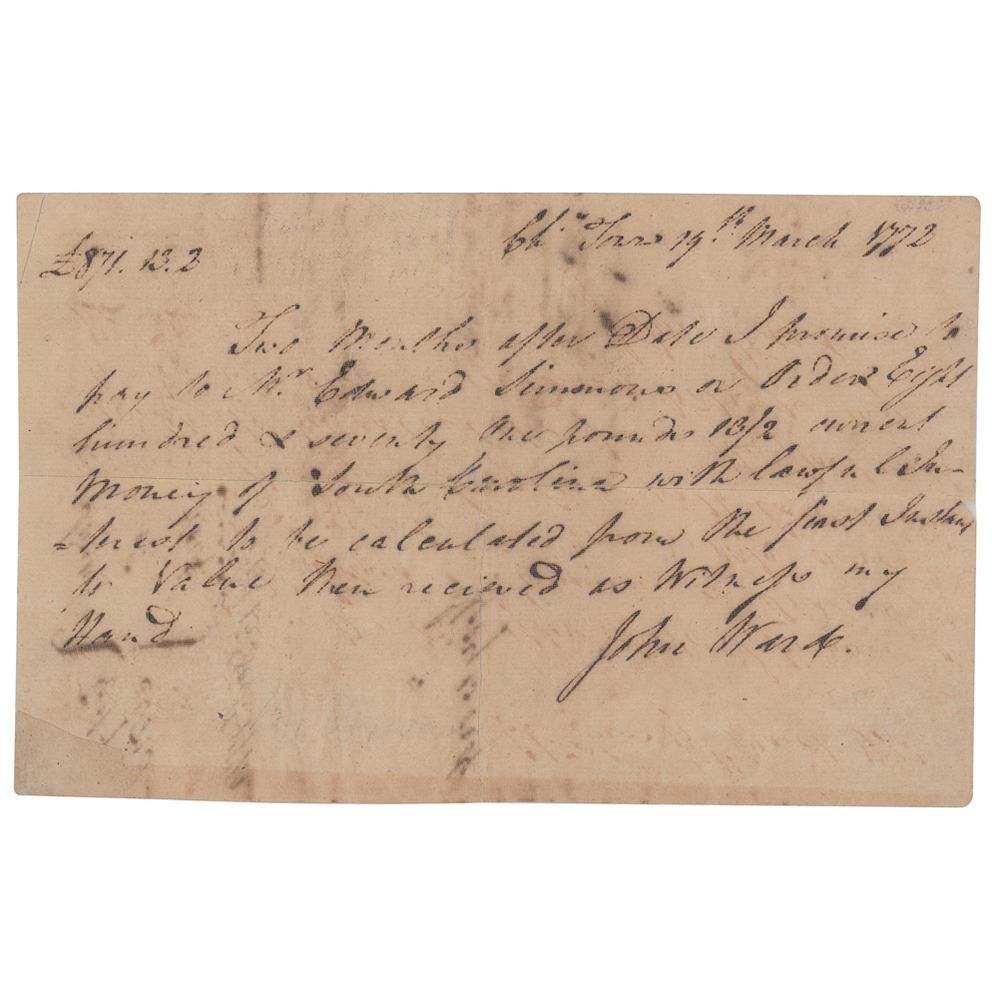 Chs. Town 19th March 1772
£871. 13. 2
Two Months after Date I promise to
pay to Mr. Edward Simmons or Order Eight
hundred & seventy One pounds 13/2 current
Money of South Carolina with lawful In-
=terest to be calculated from the first Instant
Value then recieved as Witness my
Hand.
John Ward.